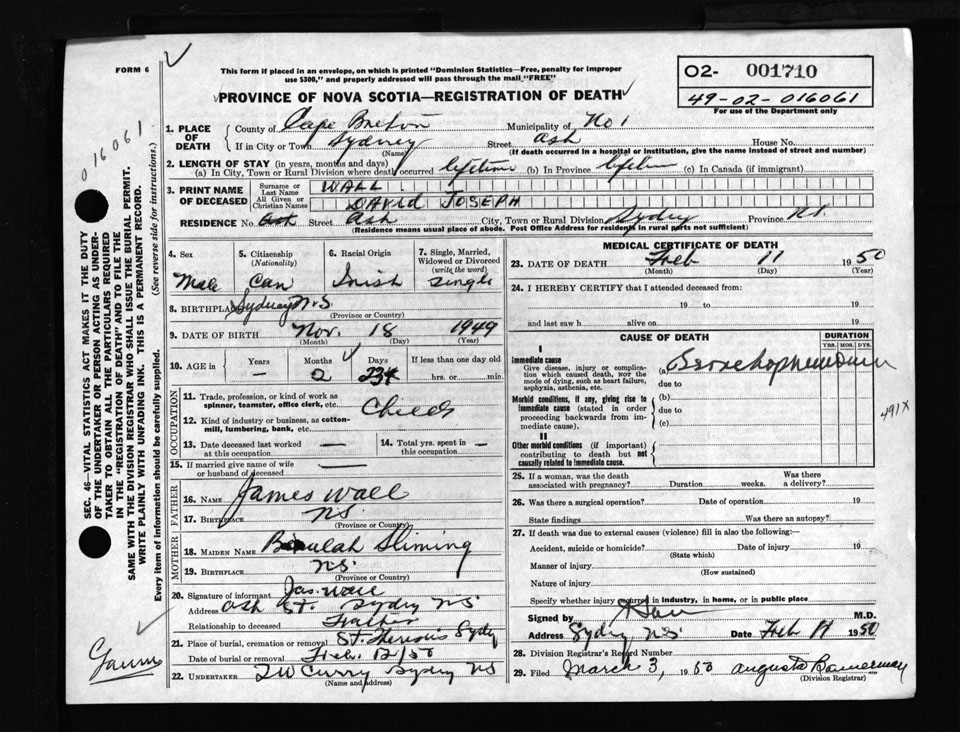 FORM 6
This form if placed in an envelope, on which is printed "Dominion Statistics—Free, penalty for improper
use $300," and properly addressed will pass through the mail "FREE"
PROVINCE OF NOVA SCOTIA—REGISTRATION OF DEATH
02- 001710
49-02-016061
For use of the Department only
016061
SEC. 46—VITAL STATISTICS ACT MAKES IT THE DUTY
OF THE UNDERTAKER OR PERSON ACTING AS UNDER-
TAKER TO OBTAIN ALL THE PARTICULARS REQUIRED
IN THE "REGISTRATION OF DEATH" AND TO FILE THE
SAME WITH THE DIVISION REGISTRAR WHO SHALL ISSUE THE BURIAL PERMIT.
WRITE PLAINLY WITH UNFADING INK. THIS IS A PERMANENT RECORD.
Every item of information should be carefully supplied. (See reverse side for instructions.)
1. PLACE OF DEATH
County of Cape Breton Municipality of No 1
If in City or Town Sydney Street Ash House No.
(Name) (If death occurred in a hospital or institution, give the name instead of street and number)
2. LENGTH OF STAY (in years, months and days)
(a) In City, Town or Rural Division where death occurred lifetime (b) In Province (c) In Canada (if immigrant)
3. PRINT NAME OF DECEASED
Surname or Last Name WALL
All Given or Christian Names DAVID JOSEPH
RESIDENCE No. Street Ash City, Town or Rural Division Sydney Province N.S.
(Residence means usual place of abode. Post Office Address for residents in rural parts not sufficient)
4. Sex
Male
5. Citizenship (Nationality)
Can
6. Racial Origin
Irish
7. Single, Married, Widowed or Divorced (write the word)
Single
8. BIRTHPLACE Sydney N.S.
(Province or Country)
9. DATE OF BIRTH Nov. 18 1949
(Month) (Day) (Year)
10. AGE in Years Months Days If less than one day old
— 2 hrs. or min.
OCCUPATION
11. Trade, profession, or kind of work as
spinner, teamster, office clerk, etc. Child
12. Kind of industry or business, as cotton-
mill, lumbering, bank, etc.
13. Date deceased last worked at this occupation —
14. Total yrs. spent in this occupation —
15. If married give name of wife
or husband of deceased —
FATHER
16. NAME James Wall
17. BIRTHPLACE N.S.
(Province or Country)
MOTHER
18. MAIDEN NAME Beulah Sliming
19. BIRTHPLACE N.S.
(Province or Country)
20. Signature of informant Jas. Wall
Address Ash St. Sydney NS
Relationship to deceased Father
21. Place of burial, cremation or removal St Theresis Sydy
Date of burial or removal Feb. 12/50
22. UNDERTAKER TW Curry Sydney NS
(Name and address)
MEDICAL CERTIFICATE OF DEATH
23. DATE OF DEATH Feb 11 1950
(Month) (Day) (Year)
24. I HEREBY CERTIFY that I attended deceased from:
19 to 19
and last saw h alive on 19
CAUSE OF DEATH
DURATION
YRS. MOS. DYS.
I
Immediate cause
Give disease, injury or complica-
tion which caused death, NOT the
mode of dying, such as heart failure,
asphyxia, asthenia, etc.
(a)
due to
Morbid conditions, if any, giving rise to
immediate cause (stated in order
proceeding backwards from im-
mediate cause).
(b)
due to
(c)
491X
II
Other morbid conditions (if important)
contributing to death but not
causally related to immediate cause.
25. If a woman, was the death
associated with pregnancy? Duration weeks. Was there a delivery?
26. Was there a surgical operation? Date of operation 19
State findings Was there an autopsy?
27. If death was due to external causes (violence) fill in also the following:—
Accident, suicide or homicide? Date of injury 19
(State which)
Manner of injury
(How sustained)
Nature of injury
Specify whether injury occurred in industry, in home, or in public place
Signed by M.D.
Address Sydney N.S. Date Feb 11 1950
28. Division Registrar's Record Number
29. Filed March 3, 1950 Augusta Bannerman
(Division Registrar)